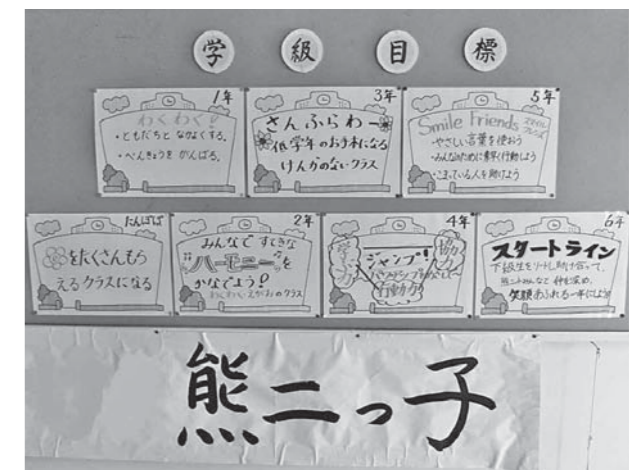 学級目標
1年
わくわく
・ともだちと なかよくする。
・べんきょうを がんばる。
3年
さんふらわー
低学年のお手本になる
けんかのないクラス
5年
Smile Friends スマイルフレンズ
・やさしい言葉を使おう
・みんなのために素早く行動しよう
・こまっている人を助けよう
たんぽぽ
をたくさんもら
えるクラスになる
2年
みんなで すてきな
"ハーモニー"を
かなでよう♪
えがおのクラス
4年
ジャンプ!
学力
協力
行動力
6年
スタートライン
下級生をリードし助け合って、
熊二っみんなと 絆を深め、
笑顔あふれる一年にしよう!
熊二っ子